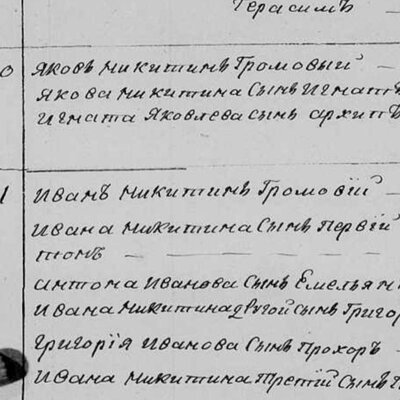 Герасимъ
0 Яковъ Никитинъ Громовый
Якова Никитина Сынъ Игнатъ
Игната Яковлева сынъ архипъ
1 Иванъ Никитинъ Громовій
Ивана Никитина Сынъ Первій
тонъ
антона Иванова Сынъ Емельян
Ивана Никитина другой сынъ Григор
Григорія Иванова Сынъ Прохоръ
Ивана Никитина Третій Сынъ